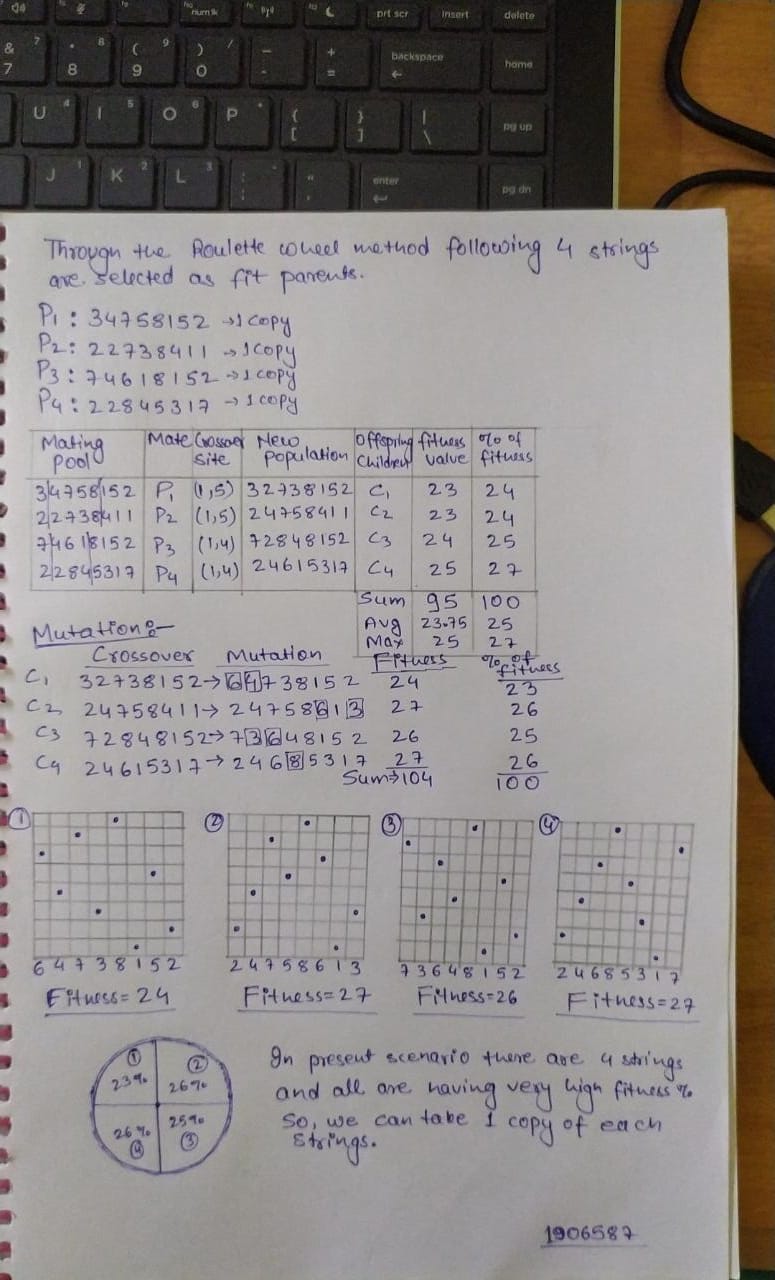 num lk
prt scr
insert
delete
& 7 7
* 8 8
( 9 9
) 0 /
_ -
+ =
backspace
home
U 4
I 5
O 6
P *
{ [
} ]
| \
pg up
J 1
K 2
L 3
: ;
" '
enter
pg dn
Through the Roulette wheel method following 4 strings
are selected as fit parents.
P1 : 34758152 → 1 copy
P2 : 22738411 → 1 copy
P3 : 74618152 → 1 copy
P4 : 22845317 → 1 copy
Mating Pool Mate Crossover Site New Population Offspring Children fitness value % of fitness
3|4758|152 P1 (1,5) 32738152 C1 23 24
2|2738|411 P2 (1,5) 24758411 C2 23 24
7|461|8152 P3 (1,4) 72848152 C3 24 25
2|284|5317 P4 (1,4) 24615317 C4 25 27
Sum 95 100
Avg 23.75 25
Max 25 27
Mutation :-
Crossover Mutation Fitness % of fitness
C1 32738152 → 64738152 24 23
C2 24758411 → 24758613 27 26
C3 72848152 → 73648152 26 25
C4 24615317 → 24685317 27 26
Sum → 104 100
① ② ③ ④
6 4 7 3 8 1 5 2
2 4 7 5 8 6 1 3
7 3 6 4 8 1 5 2
2 4 6 8 5 3 1 7
Fitness = 24
Fitness = 27
Fitness = 26
Fitness = 27
① 23%
② 26%
26% ④
25% ③
In present scenario there are 4 strings
and all are having very high fitness %
So, we can take 1 copy of each
strings.
1906587